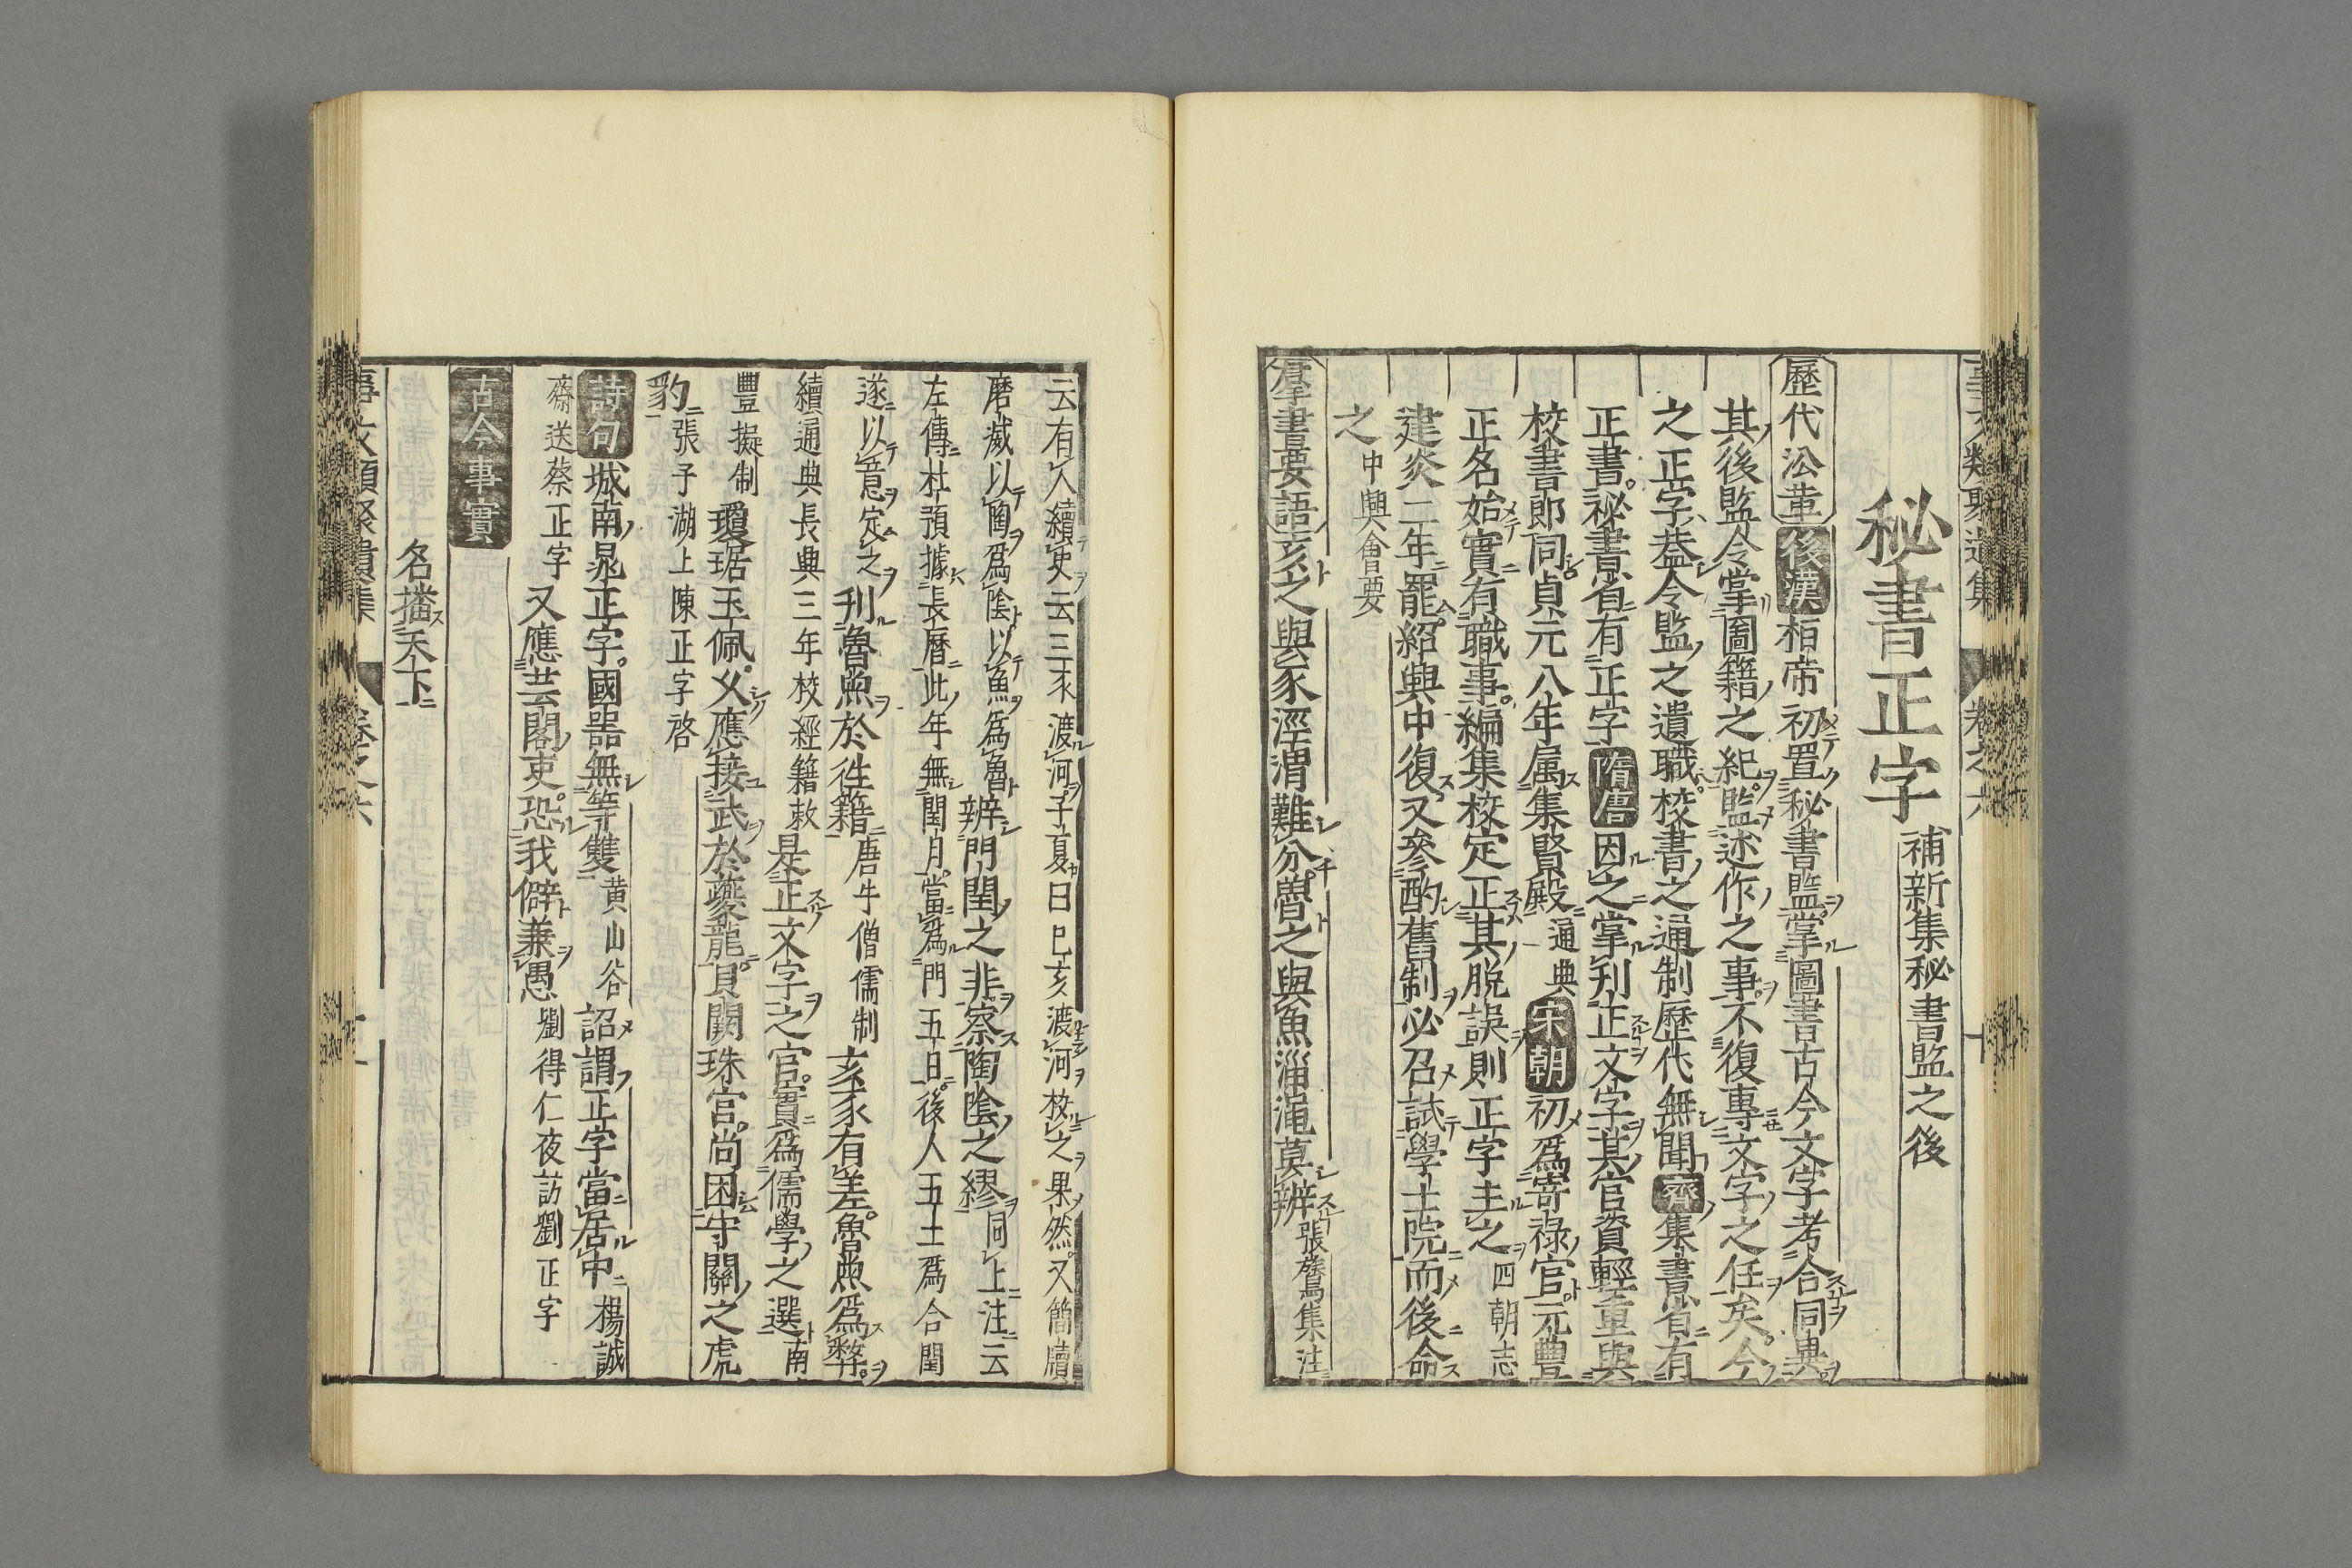 秘書正字補新集秘書監之後
歷代㳂革後漢栢帝初置秘書監掌圖書古今文字考合同異
其後監令掌圖籍之紀監述作之事不復專文字之任矣今
之正字葢令監之遺職校書之通制歷代無聞齊集書省有
正書秘書省有正字隋唐因之掌刋正文字其官資輕重與
校書郎同貞元八年属集賢殿通典宋朝初爲寄禄官元豊
正名始實有職事編集校定正其脱誤則正字主之四朝志
建炎二年罷紹興中復又參酌舊制必召試學士院而後命
之中興會要
羣書要語亥之與豕涇渭難分曽之與魚淄澠莫辨張騖集注
云有人續史云三豕渡河子夏曰巳亥渡河校之果然又簡牘
磨滅以陶爲陰以魚爲魯辨門閏之非察陶陰之繆同上注云
左傳杜預據長曆此年無閏月當爲門五日後人五土爲合閏
遂以意定之刋魯魚於徃籍唐牛僧儒制亥豕有差魯魚爲弊
續通典長興三年校經籍敕是正文字之官實爲儒學之選南
豐擬制瓊琚玉佩父應接武於夔龍貝闕珠宮尚困守關之虎
豹張子湖上陳正字啓
詩句城南晁正字國器無等雙黄山谷詔謂正字當居中楊誠
齋送蔡正字又應芸閣吏恐我僻兼愚劉得仁夜訪劉正字
古今事實
名播天下